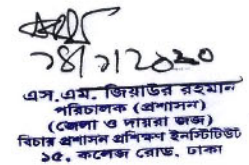 এস.এম. জিয়াউর রহমান
পরিচালক (প্রশাসন)
(জেলা ও দায়রা জজ)
বিচার প্রশাসন প্রশিক্ষণ ইনস্টিটিউট
১৫, কলেজ রোড, ঢাকা